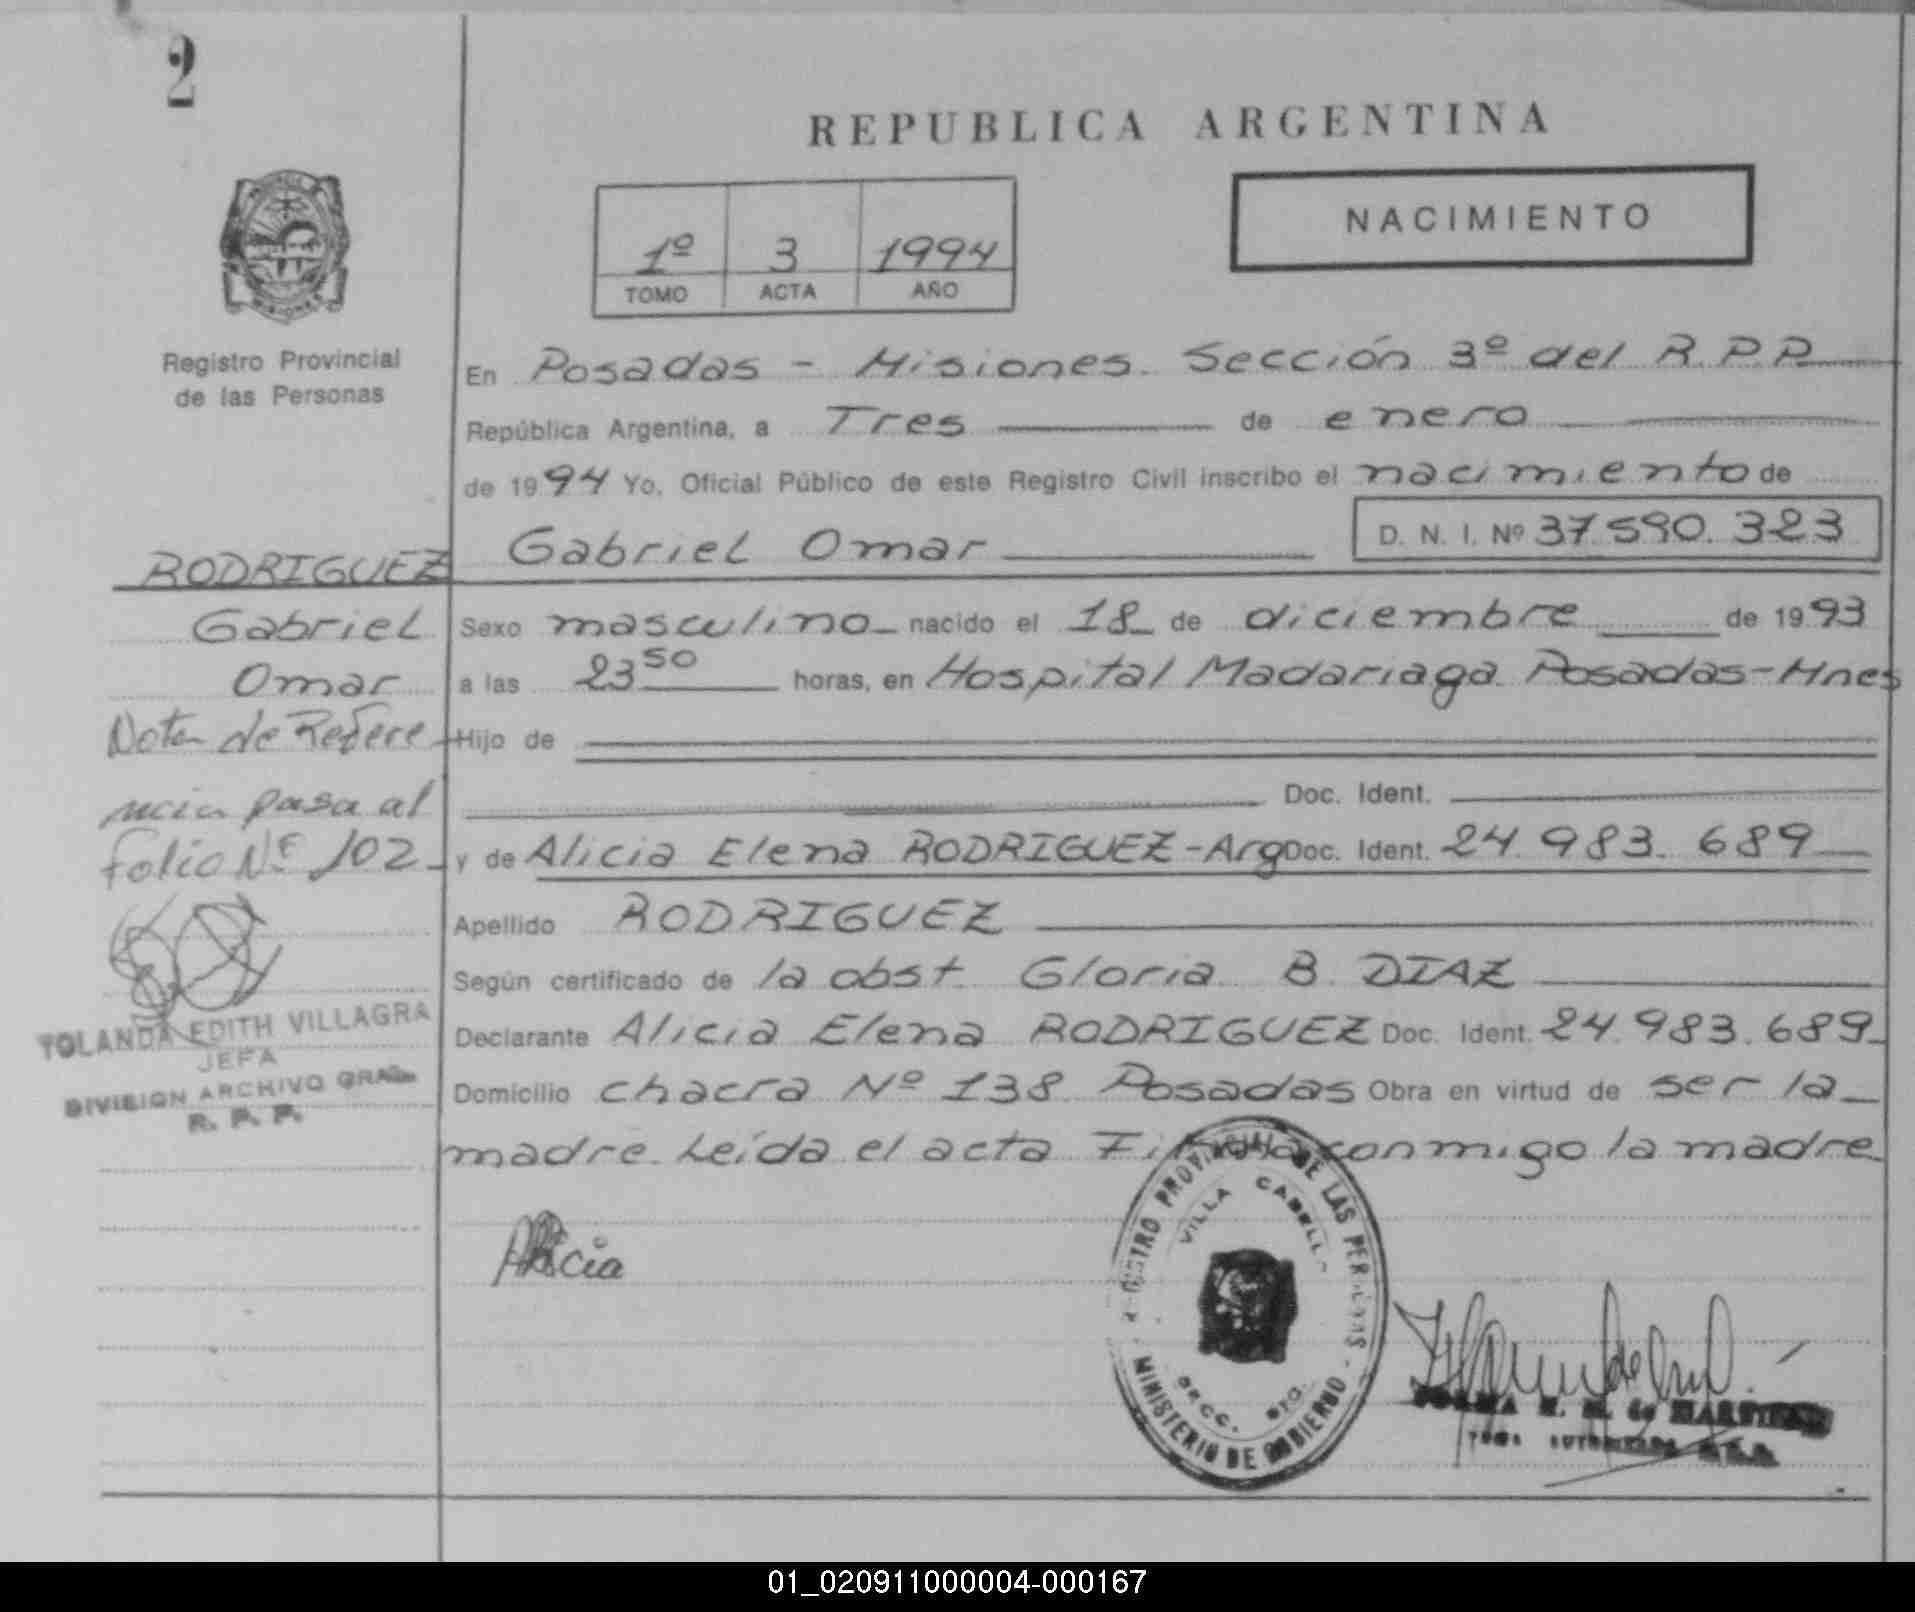 2
REPUBLICA ARGENTINA
NACIMIENTO
1º 3 1994
TOMO ACTA AÑO
Registro Provincial
de las Personas
En Posadas - Misiones. Sección 3º del R.P.P.
República Argentina, a Tres de enero
de 1994 Yo, Oficial Público de este Registro Civil inscribo el nacimiento de
Gabriel Omar D. N. I. Nº 37.590.323
RODRIGUEZ
Gabriel
Omar
Nota de Refere
ncia pasa al
folio Nº 102
YOLANDA EDITH VILLAGRA
JEFA
DIVISION ARCHIVO GRAL.
R. P. P.
Sexo masculino nacido el 18 de diciembre de 1993
a las 23 50 horas, en Hospital Madariaga. Posadas-Mnes
Hijo de
Doc. Ident.
y de Alicia Elena RODRIGUEZ-Arg Doc. Ident. 24.983.689
Apellido RODRIGUEZ
Según certificado de la obst. Gloria B. DIAZ
Declarante Alicia Elena RODRIGUEZ Doc. Ident. 24.983.689
Domicilio chacra Nº 138 Posadas Obra en virtud de ser la
madre. Leída el acta Firma conmigo la madre
Alicia
REGISTRO PROVINCIAL DE LAS PERSONAS
VILLA CABELLO
MINISTERIO DE GOBIERNO
de
01_020911000004-000167